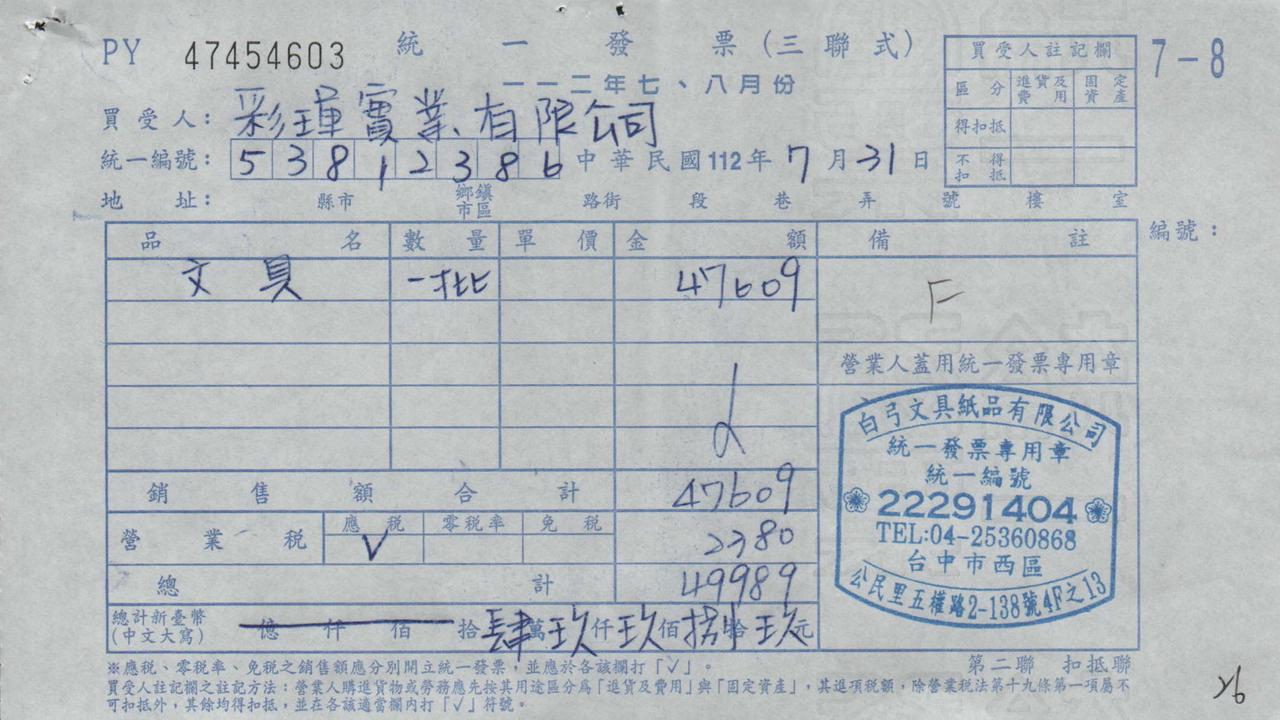 PY 47454603 統一發票(三聯式) 7-8
一一二年七、八月份
買受人: 彩瑋實業有限公司
統一編號: 53812386 中華民國112年7月31日
地址: 縣市 鄉鎮市區 路街 段 巷 弄 號 樓 室
買受人註記欄
區分 進貨及費用 固定資產
得扣抵
不得扣抵
編號:
品名 數量 單價 金額 備註
文具 一批 47609 F
營業人蓋用統一發票專用章
銷售額合計 47609
營業稅 應稅 零稅率 免稅
V 2380
總計 49989
總計新臺幣
(中文大寫) 億仟佰拾肆萬玖仟玖佰捌拾玖元
白弓文具紙品有限公司
統一發票專用章
統一編號
22291404
TEL:04-25360868
台中市西區
公民里五權路2-138號4F之13
※應稅、零稅率、免稅之銷售額應分別開立統一發票,並應於各該欄打「✓」。
第二聯 扣抵聯
買受人註記欄之註記方法:營業人購進貨物或勞務應先按其用途區分為「進貨及費用」與「固定資產」,其進項稅額,除營業稅法第十九條第一項屬不
可扣抵外,其餘均得扣抵,並在各該適當欄內打「✓」符號。
26